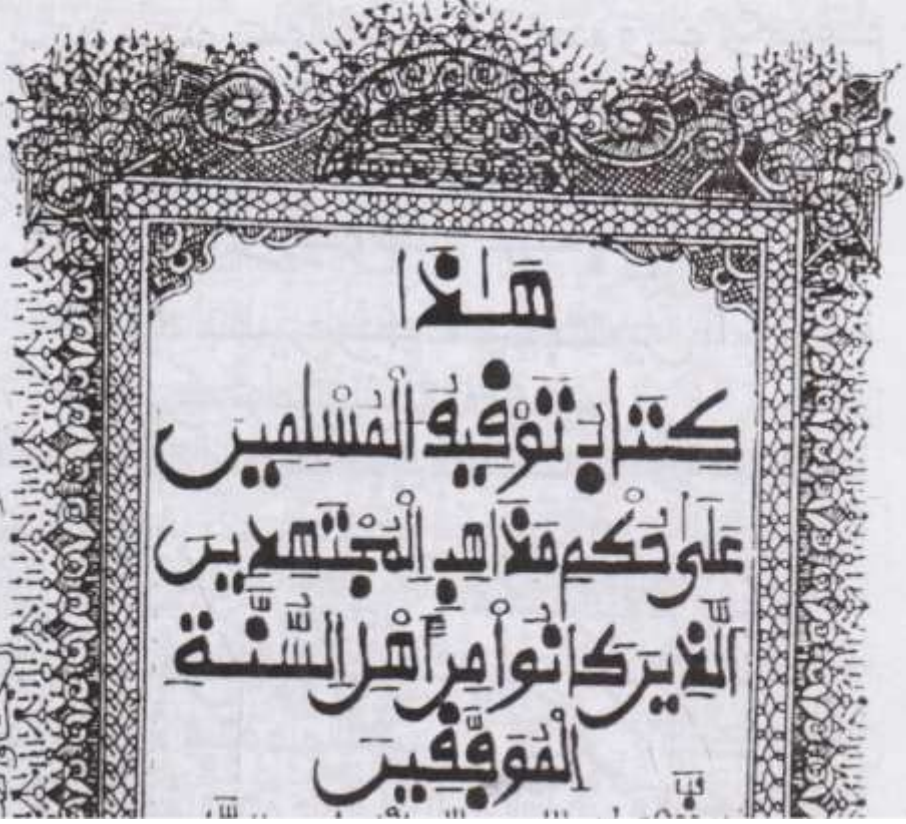 هَـٰذَا
كِتَابُ تَوْفِيقِ الْمُسْلِمِينَ
عَلَىٰ حُكْمِ مَذَاهِبِ الْمُجْتَهِدِينَ
الَّذِينَ كَانُواْ مِنْ أَهْلِ السُّنَّةِ
الْمُوَفَّقِينَ